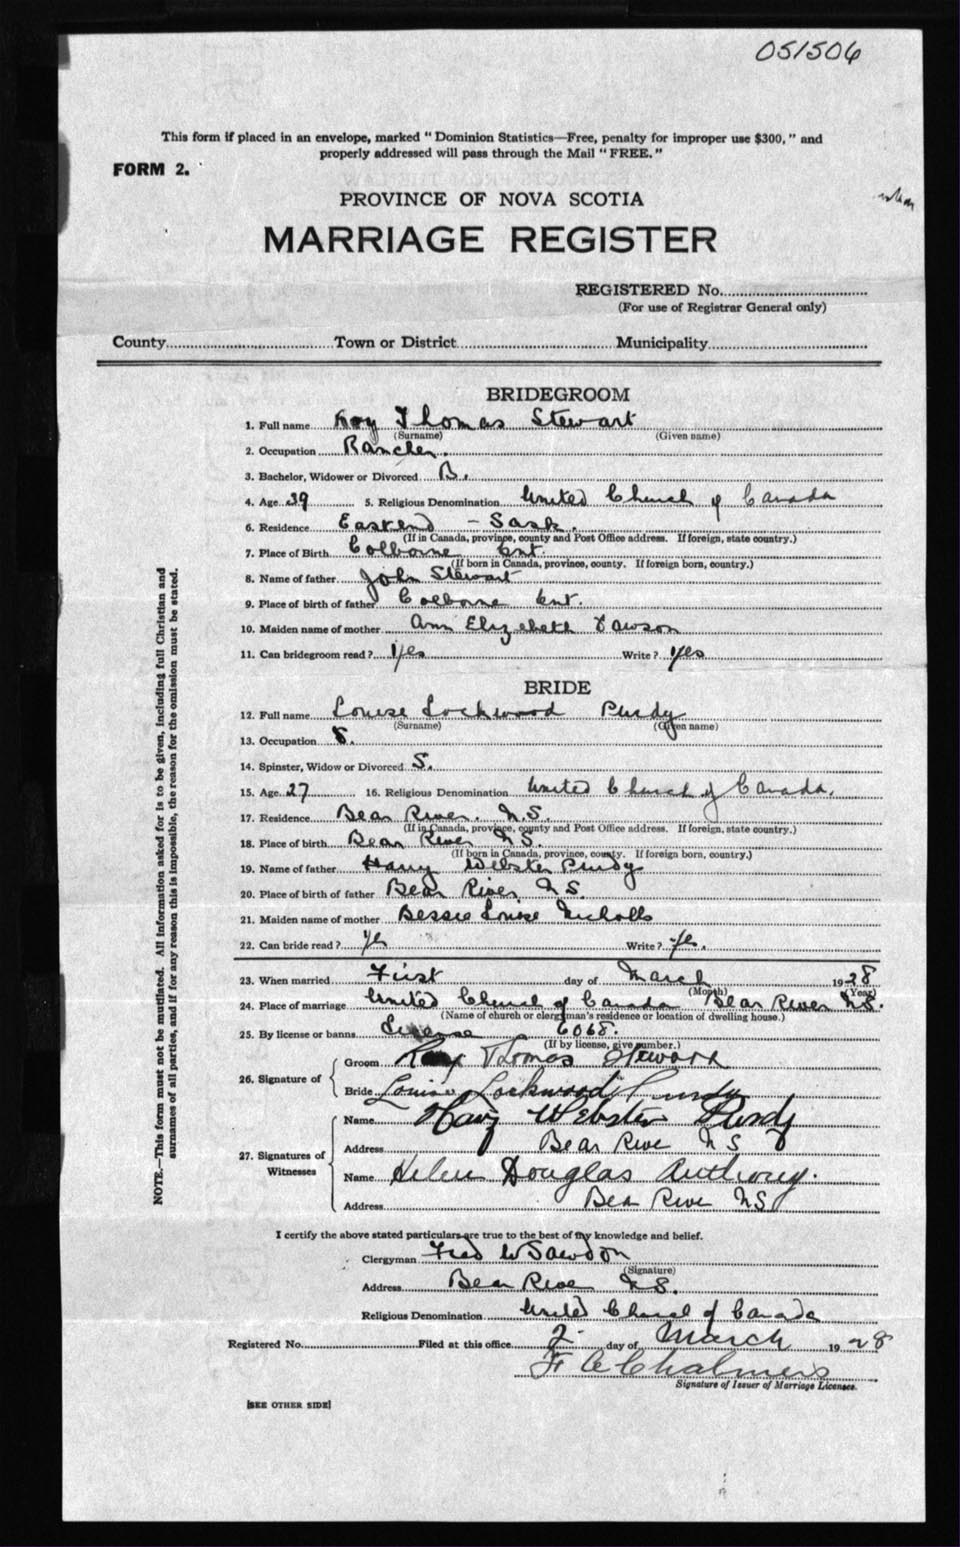 051506
This form if placed in an envelope, marked " Dominion Statistics—Free, penalty for improper use $300, " and
properly addressed will pass through the Mail " FREE. "
FORM 2.
PROVINCE OF NOVA SCOTIA
MARRIAGE REGISTER
REGISTERED No.
(For use of Registrar General only)
County Town or District Municipality
BRIDEGROOM
1. Full name Roy Thomas Stewart
(Surname) (Given name)
2. Occupation Rancher.
3. Bachelor, Widower or Divorced B.
4. Age 39 5. Religious Denomination United Church of Canada
6. Residence Eastend - Sask.
(If in Canada, province, county and Post Office address. If foreign, state country.)
7. Place of Birth Colborne Ont.
(If born in Canada, province, county. If foreign born, country.)
8. Name of father John Stewart
9. Place of birth of father Colborne Ont.
10. Maiden name of mother Ann Elizebeth Dawson
11. Can bridegroom read? Yes Write? Yes
BRIDE
12. Full name Louise Lockwood Purdy
(Surname) (Given name)
13. Occupation S.
14. Spinster, Widow or Divorced S.
15. Age 27 16. Religious Denomination United Church of Canada.
17. Residence Bear River. N.S.
(If in Canada, province, county and Post Office address. If foreign, state country.)
18. Place of birth Bear River N.S.
(If born in Canada, province, county. If foreign born, country.)
19. Name of father Harry Webster Purdy
20. Place of birth of father Bear River N.S.
21. Maiden name of mother Bessie Louise Nicholls
22. Can bride read? Yes Write? Yes.
23. When married First day of March 1928
(Month) (Year)
24. Place of marriage United Church of Canada Bear River N.S.
(Name of church or clergyman's residence or location of dwelling house.)
25. By license or banns License 6068.
(If by license, give number.)
26. Signature of
Groom Roy Thomas Stewart
Bride Louise Lockwood Purdy
27. Signatures of Witnesses
Name Harry Webster Purdy
Address Bear River N S
Name Helen Douglas Anthony.
Address Bear River NS
I certify the above stated particulars are true to the best of my knowledge and belief.
Clergyman Fred W Sawdon
(Signature)
Address Bear River N.S.
Religious Denomination United Church of Canada
Registered No. Filed at this office 2 day of March 1928
F C Chalmers
Signature of Issuer of Marriage Licenses.
[SEE OTHER SIDE]
NOTE.—This form must not be mutilated. All information asked for is to be given, including full Christian and
surnames of all parties, and if for any reason this is impossible, the reason for the omission must be stated.